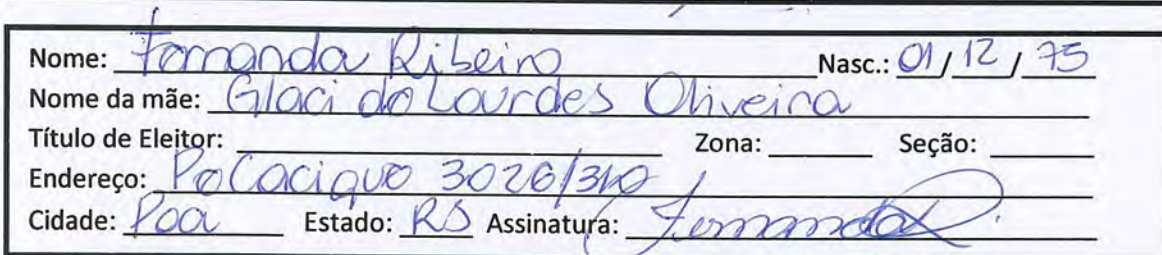 Nome: Fernanda Ribeiro Nasc.: 01/12/75
Nome da mãe: Glaci de Lourdes Oliveira
Título de Eleitor: Zona: Seção:
Endereço: Cacique 3026/310
Cidade: Poa Estado: RS Assinatura: Fernanda R.